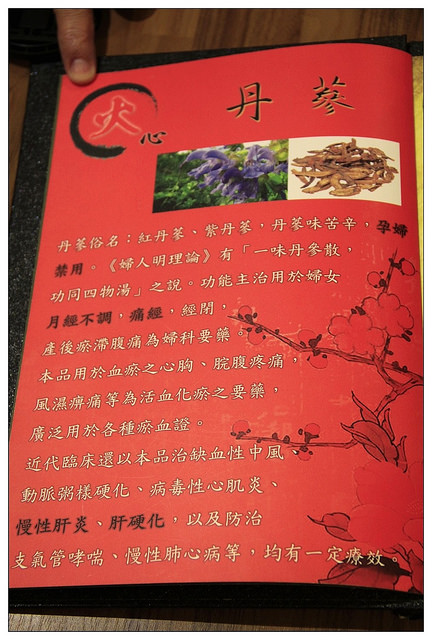 火
心
丹 蔘
丹蔘俗名：紅丹蔘、紫丹蔘，丹蔘味苦辛，孕婦
禁用。《婦人明理論》有「一味丹參散，
功同四物湯」之說。功能主治用於婦女
月經不調，痛經，經閉，
產後瘀滯腹痛為婦科要藥。
本品用於血瘀之心胸、脘腹疼痛，
風濕痹痛等為活血化瘀之要藥，
廣泛用於各種瘀血證。
近代臨床還以本品治缺血性中風、
動脈粥樣硬化、病毒性心肌炎、
慢性肝炎、肝硬化，以及防治
支氣管哮喘、慢性肺心病等，均有一定療效。